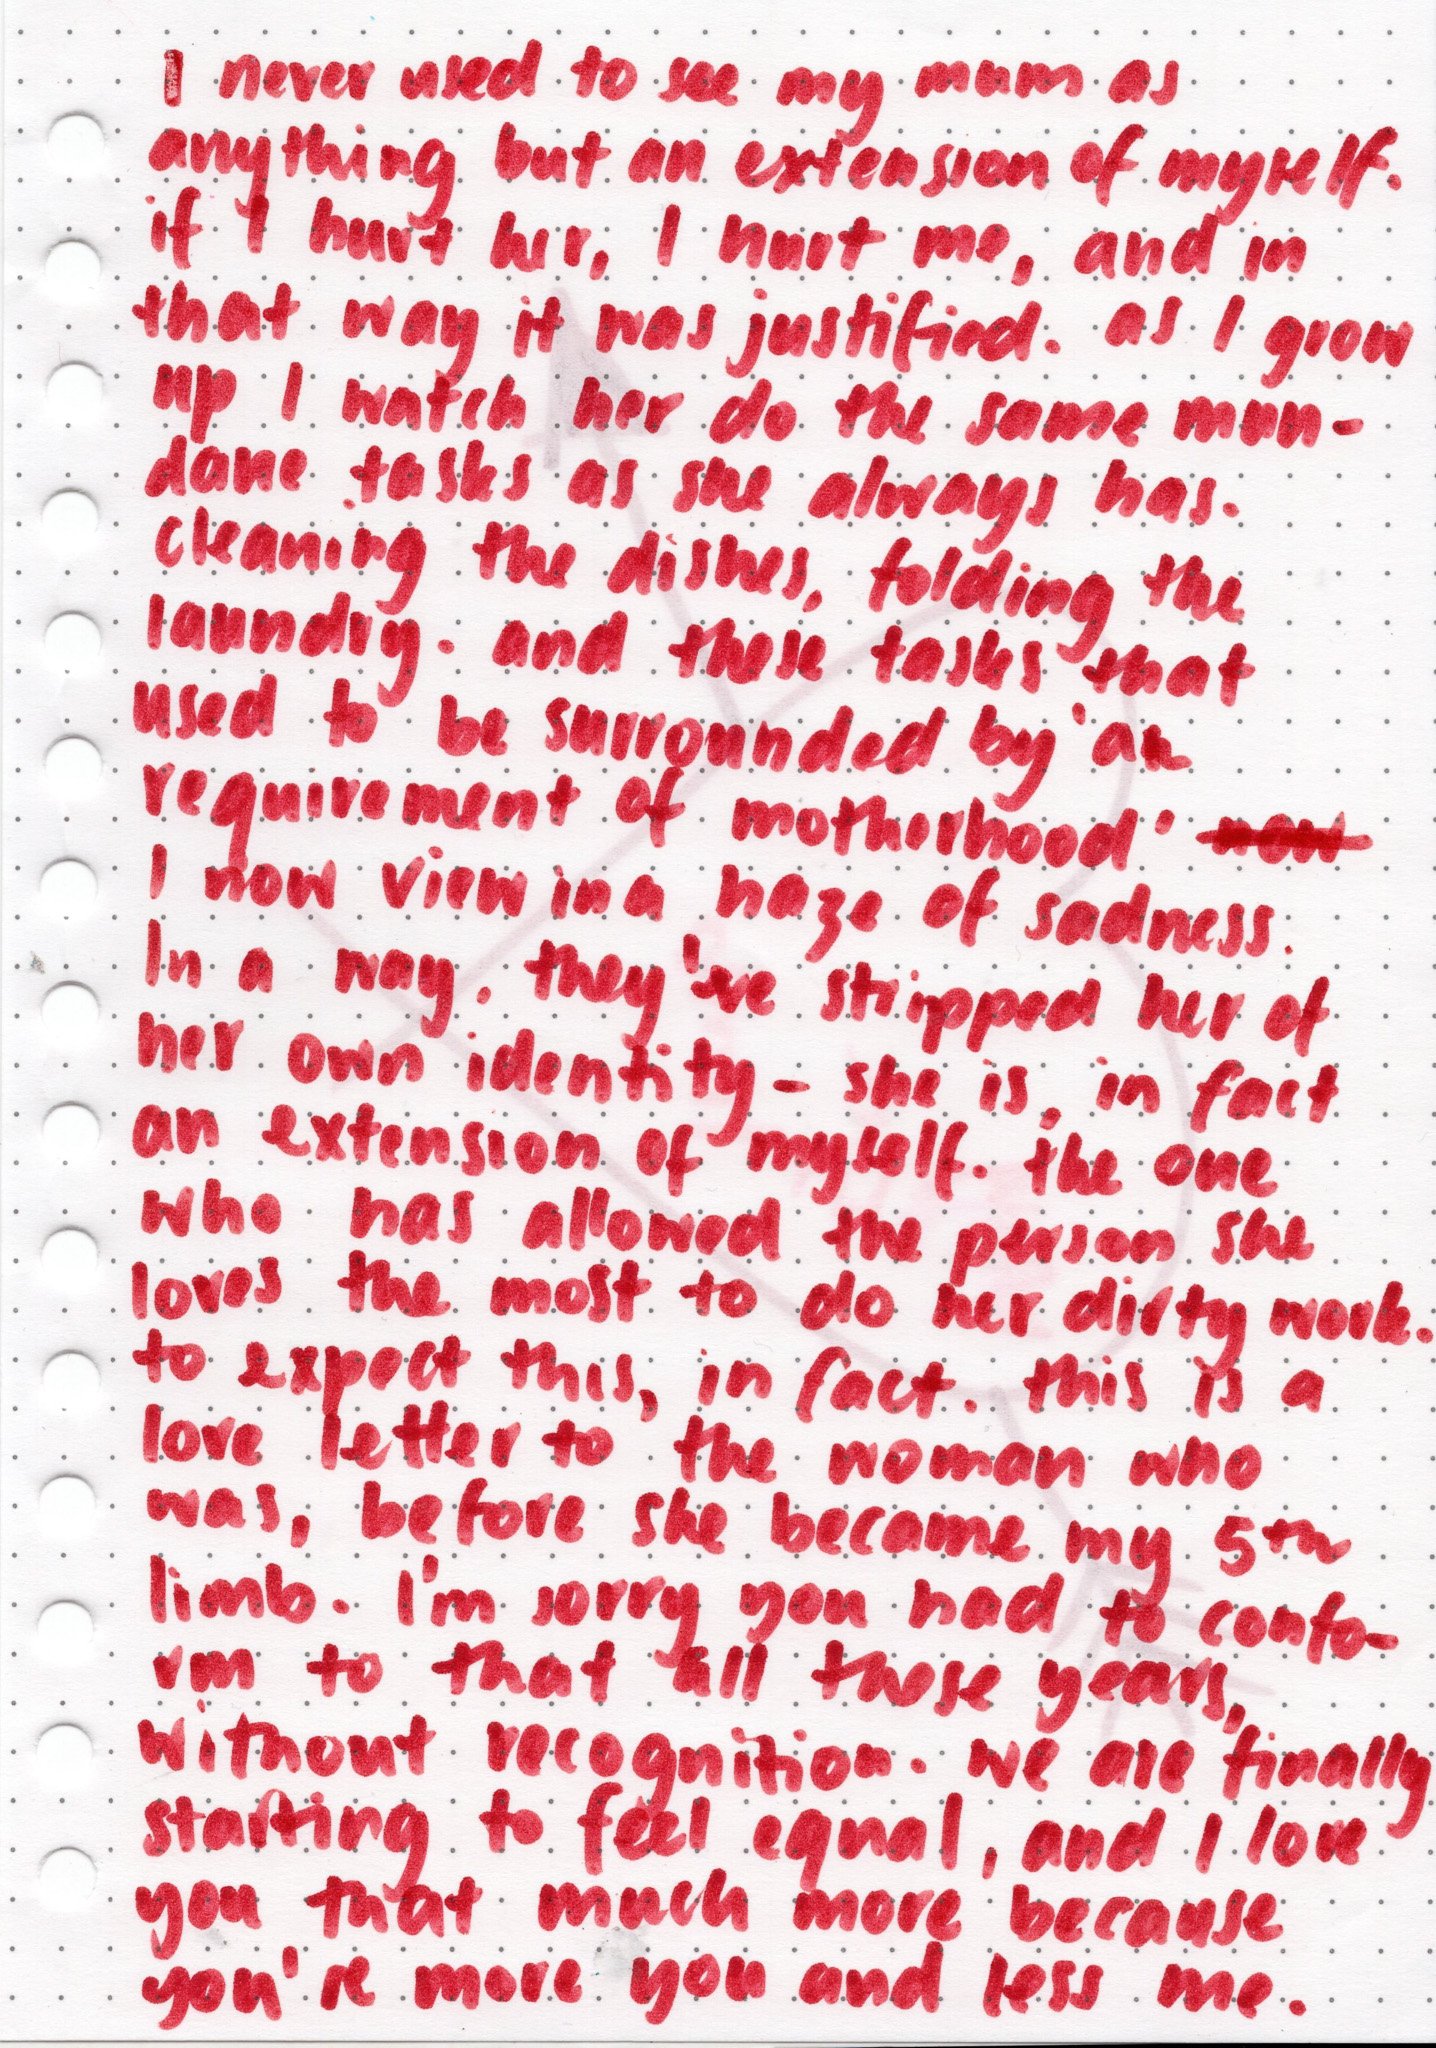 I never used to see my mum as
anything but an extension of myself.
if I hurt her, I hurt me, and in
that way it was justified. as I grow
up I watch her do the same mun-
dane tasks as she always has.
cleaning the dishes, folding the
laundry. and these tasks that
used to be surrounded by 'a
requirement of motherhood' now
I now view in a haze of sadness.
In a way, they've stripped her of
her own identity - she is, in fact
an extension of myself. the one
who has allowed the person she
loves the most to do her dirty work.
to expect this, in fact. this is a
love letter to the woman who
was, before she became my 5th
limb. I'm sorry you had to confo-
rm to that all those years,
without recognition. we are finally
starting to feel equal, and I love
you that much more because
you're more you and less me.